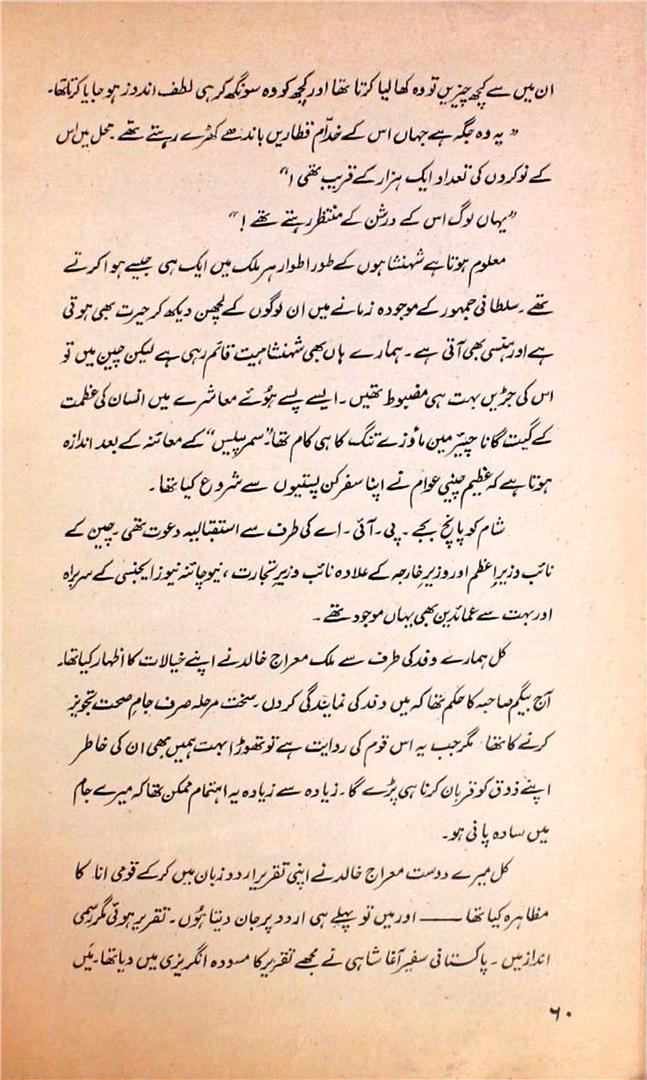 ان میں سے کچھ چیزیں تو وہ کھا لیا کرتا تھا اور کچھ کو وہ سونگھ کر ہی لطف اندوز ہو جایا کرتا تھا۔
”یہ وہ جگہ ہے جہاں اس کے خدّام قطاریں باندھے کھڑے رہتے تھے۔ محل میں اس
کے نوکروں کی تعداد ایک ہزار کے قریب تھی!“
”یہاں لوگ اس کے درشن کے منتظر رہتے تھے!“
معلوم ہوتا ہے شہنشاہوں کے طور اطوار ہر ملک میں ایک ہی جیسے ہوا کرتے
تھے۔ سلطانیٔ جمہور کے موجودہ زمانے میں ان لوگوں کے لچھن دیکھ کر حیرت بھی ہوتی
ہے اور ہنسی بھی آتی ہے۔ ہمارے ہاں بھی شہنشاہیت قائم رہی ہے لیکن چین میں تو
اس کی جڑیں بہت ہی مضبوط تھیں۔ ایسے پسے ہوئے معاشرے میں انسان کی عظمت
کے گیت گانا چیئرمین ماؤزے تنگ کا ہی کام تھا۔ ”سمر پیلس“ کے معائنہ کے بعد اندازہ
ہوتا ہے کہ عظیم چینی عوام نے اپنا سفر کن پستیوں سے شروع کیا تھا۔
شام کو پانچ بجے۔ پی۔ آئی۔ اے کی طرف سے استقبالیہ دعوت تھی۔ چین کے
نائب وزیرِ اعظم اور وزیرِ خارجہ کے علاوہ نائب وزیرِ تجارت، نیو چائنہ نیوز ایجنسی کے سربراہ
اور بہت سے عمائدین بھی یہاں موجود تھے۔
کل ہمارے وفد کی طرف سے ملک معراج خالد نے اپنے خیالات کا اظہار کیا تھا۔
آج بیگم صاحبہ کا حکم تھا کہ میں وفد کی نمایندگی کروں۔ سخت مرحلہ صرف جامِ صحت تجویز
کرنے کا تھا مگر جب یہ اس قوم کی روایت ہے تو تھوڑا بہت ہمیں بھی ان کی خاطر
اپنے ذوق کو قربان کرنا ہی پڑے گا۔ زیادہ سے زیادہ یہ اہتمام ممکن تھا کہ میرے جام
میں سادہ پانی ہو۔
کل میرے دوست معراج خالد نے اپنی تقریر اردو زبان میں کر کے قومی انا کا
مظاہرہ کیا تھا —— اور میں تو پہلے ہی اردو پر جان دیتا ہوں۔ تقریر ہوئی مگر رسمی
انداز میں۔ پاکستانی سفیر آغا شاہی نے مجھے تقریر کا مسودہ انگریزی میں دیا تھا۔ میَں
۶۰